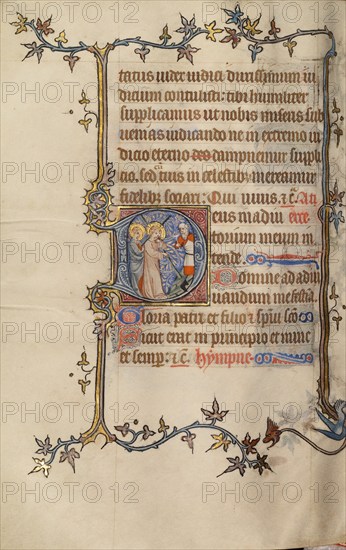 tatus iudex iudici durissimum iu
dicium contulisti: tibi humiliter
supplicamus ut nobis miseris sub
uenias iudicando ne in extremo iu
dicio eterno dampnemur suppli
cio. sed tecum in celestibus mereamur
fidelibus sociari. Qui uiuis. et c. Ant
eus in adiu
torium meum in
tende.
Domine ad adiu
uandum me festina
Gloria patri et filio et spiritui sco
Sicut erat in principio et nunc
et semper. et c. Hympne
PHOTO12